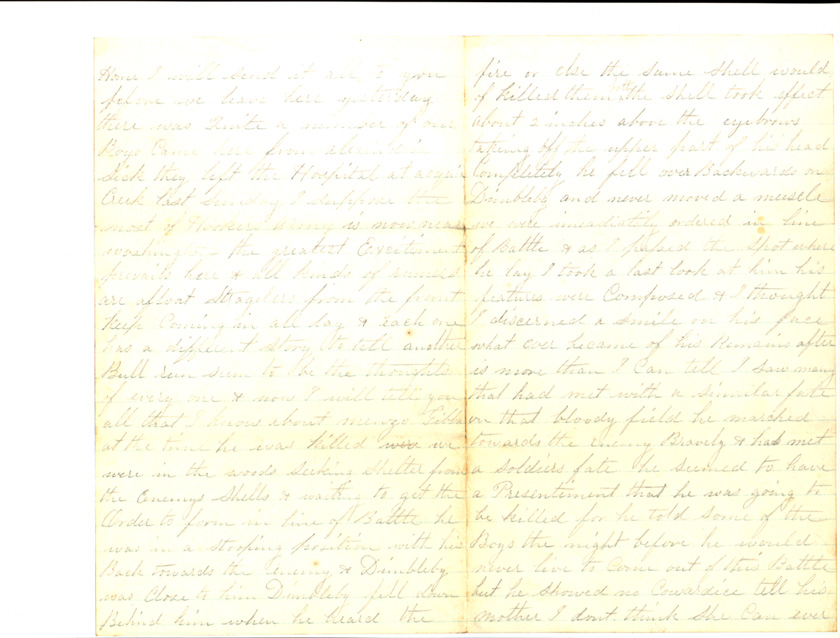 Home I will send it all to you
before we leave here yesterday
there was Quite a number of our
Boys Came here from
Sick they left the Hospital at acquia
Creek last Sunday I suppose the
most of Hookers army is now near
washington the greatest Excitement
prevails here & all kinds of rumors
are afloat Stragelers from the front
keep Coming in all day & each one
has a different Story to tell another
Bull run seem to be the thoughts
of every one & now I will tell you
all that I know about menzo
at the time he was killed we
were in the woods Seeking Shelter from
the Enemys Shells & waiting to get the
Order to form in line of Battle he
was in a stooping position with his
Back towards the enemy & Dumbleby
was Close to him Dumbleby fell down
Behind him when he heard the
fire or else the same shell would
of killed them both the shell took effect
about 2 inches above the eyebrows
taking off the upper part of his head
Completely he fell over Backwards on
Dumbleby and never moved a muscle
we were imediately ordered in line
of Battle & as I passed the spot where
he lay I took a last look at him his
features were Composed & I thought
I discerned a smile on his face
what ever became of his Remains after
is more than I Can tell I saw many
that had met with a simular fate
on that bloody field he marched
towards the enemy Bravely & had met
a Soldiers fate he seemed to have
a Presentiment that he was going to
be killed for he told some of the
Boys the night before he would
never live to Come out of this Battle
but he showed no Cowardice tell his
mother I dont think She Can ever